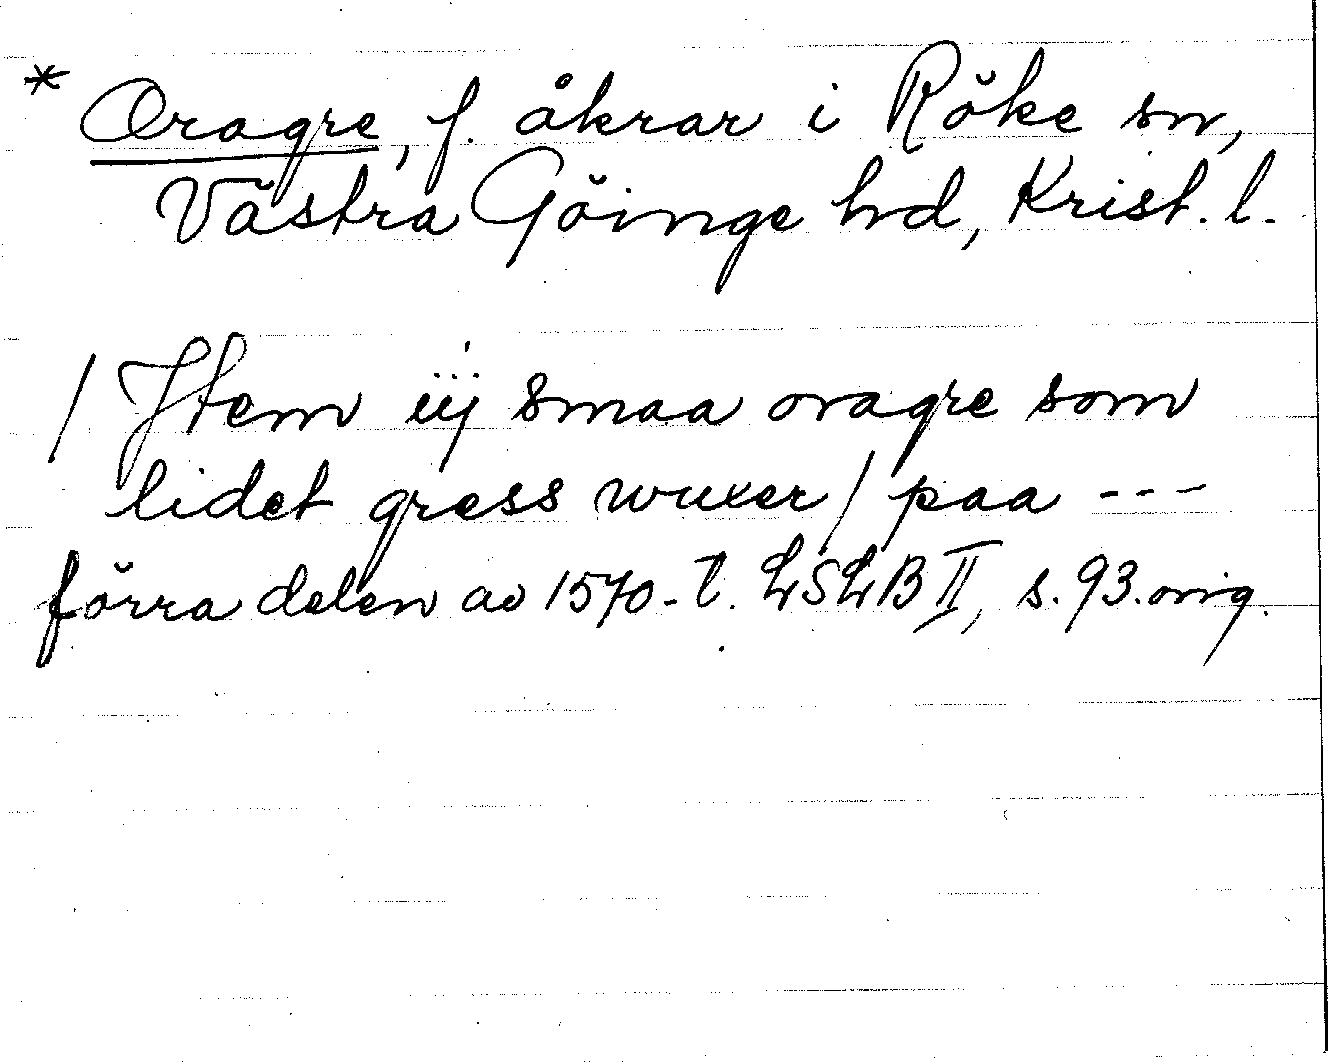 * Oragre, f. åkrar i Röke sn,
Västra Göinge hd, Krist. l.
/ Jtem iij smaa oragre som
lidet gress wuxer / paa ---
förra delen av 1570-t. LSLB II, s. 93. orig.